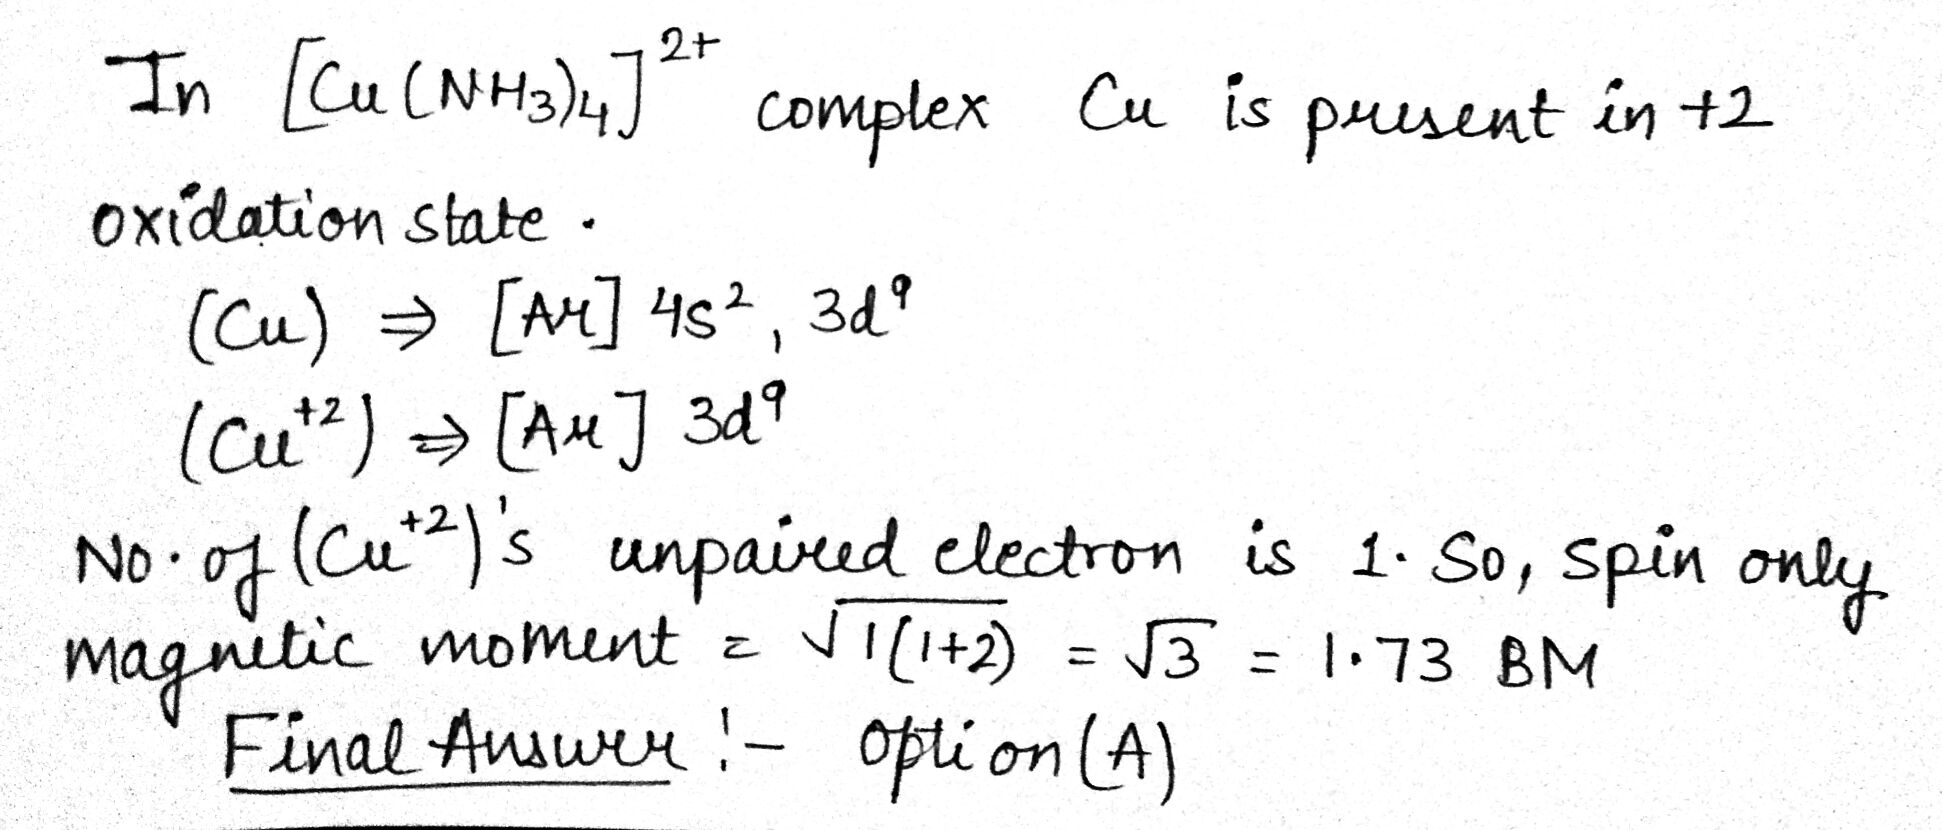 In [Cu(NH3)4]²⁺ complex Cu is present in +2
oxidation state.
(Cu) ⇒ [Ar] 4s², 3d⁹
(Cu⁺²) ⇒ [Ar] 3d⁹
No. of (Cu⁺²)'s unpaired electron is 1. So, spin only
magnetic moment = √1(1+2) = √3 = 1.73 BM
Final Answer :- option (A)